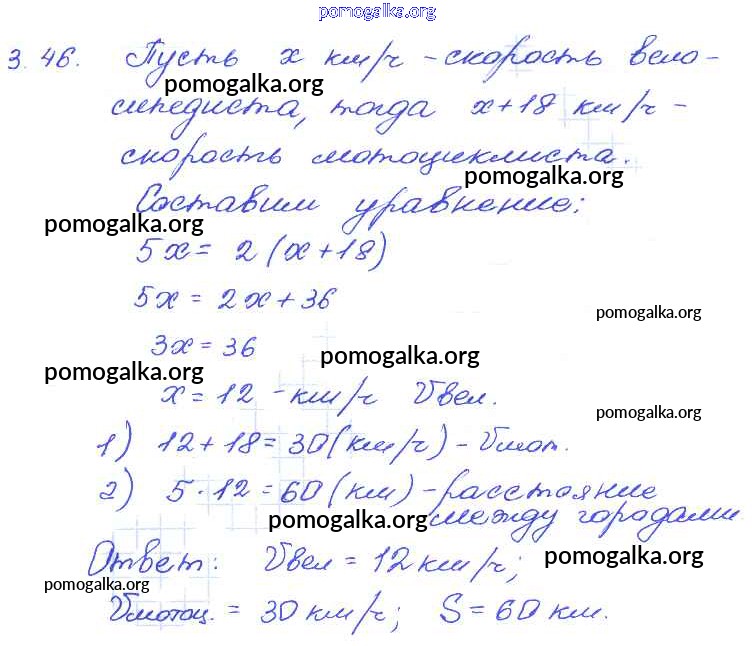 pomogalka.org
3.46. Пусть x км/ч - скорость вело-
pomogalka.org
сипедиста, тогда x+18 км/ч -
скорость мотоциклиста.
pomogalka.org
Составим уравнение:
pomogalka.org
5x = 2 (x+18)
5x = 2x+36
pomogalka.org
3x = 36
pomogalka.org
pomogalka.org
x = 12 - км/ч Vвел.
pomogalka.org
1) 12+18=30(км/ч) - Vмот.
2) 5·12=60 (км) - расстояние
pomogalka.org
между городами
Ответ: Vвел = 12 км/ч;
pomogalka.org
pomogalka.org
Vмотоц. = 30 км/ч; S = 60 км.